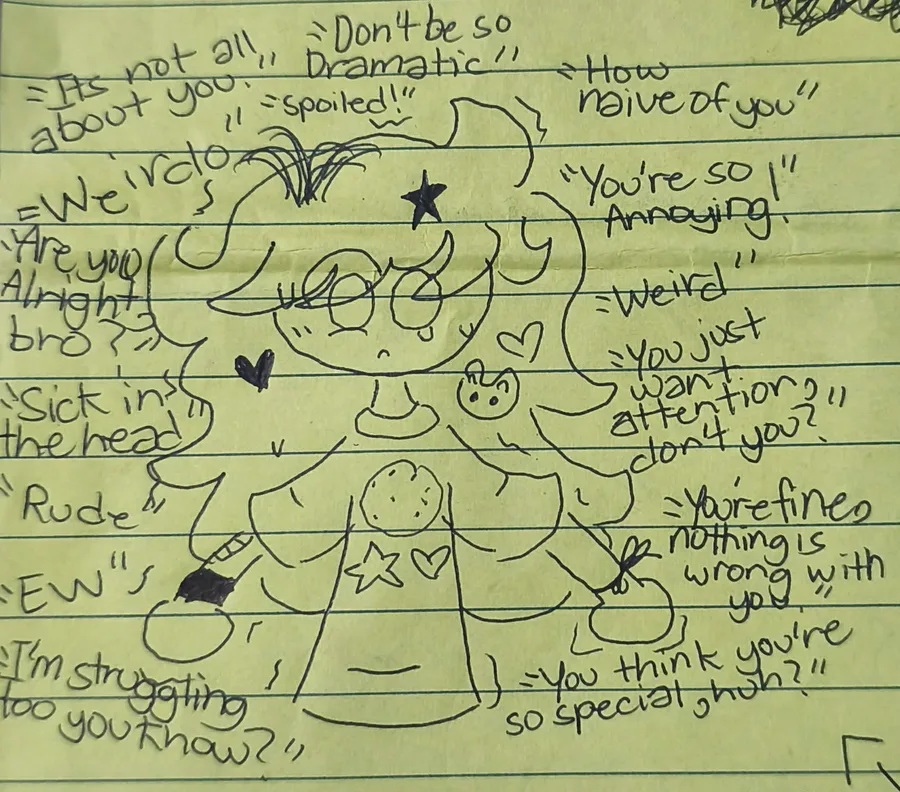 "Its not all
about you."
"Don't be so
Dramatic"
"spoiled!"
"How
naive of you"
"Weirdo"
"You're so
Annoying!"
"Are you
Alright
bro?"
"Weird"
"You just
want
attention,
don't you?"
"Sick in
the head"
"Rude"
"You're fine,
nothing is
wrong with
you."
"EW"
"I'm struggling
too you know?"
"You think you're
so special, huh?"